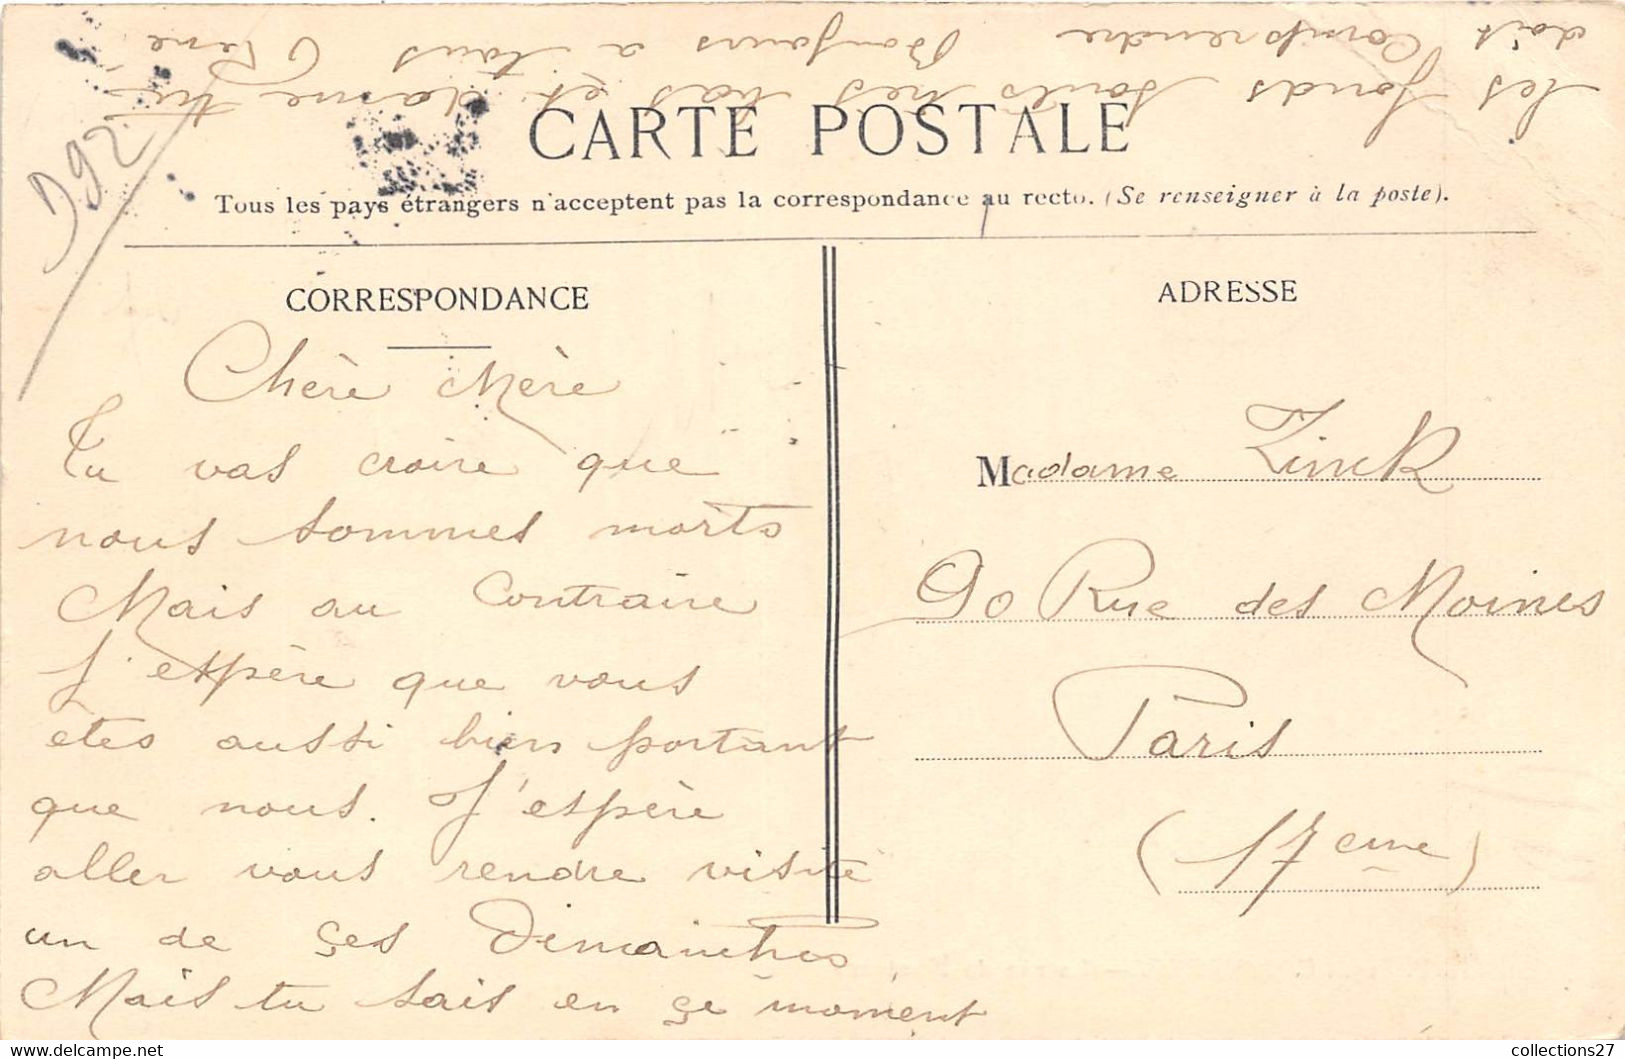 D92
CARTE POSTALE
Tous les pays étrangers n'acceptent pas la correspondance au recto. (Se renseigner à la poste).
CORRESPONDANCE
Chère Mère
Tu vas croire que
nous sommes morts
Mais au Contraire
J'espère que vous
etes aussi bien portant
que nous. J'espère
aller vous rendre visite
un de çes Dimanches
Mais tu sais en çe moment
les fonds sont très bas et dame tu
dois Comprendre Bonjours a tous René
ADRESSE
Madame Zinck
90 Rue des Moines
Paris
(17eme)
collections27
www.delcampe.net